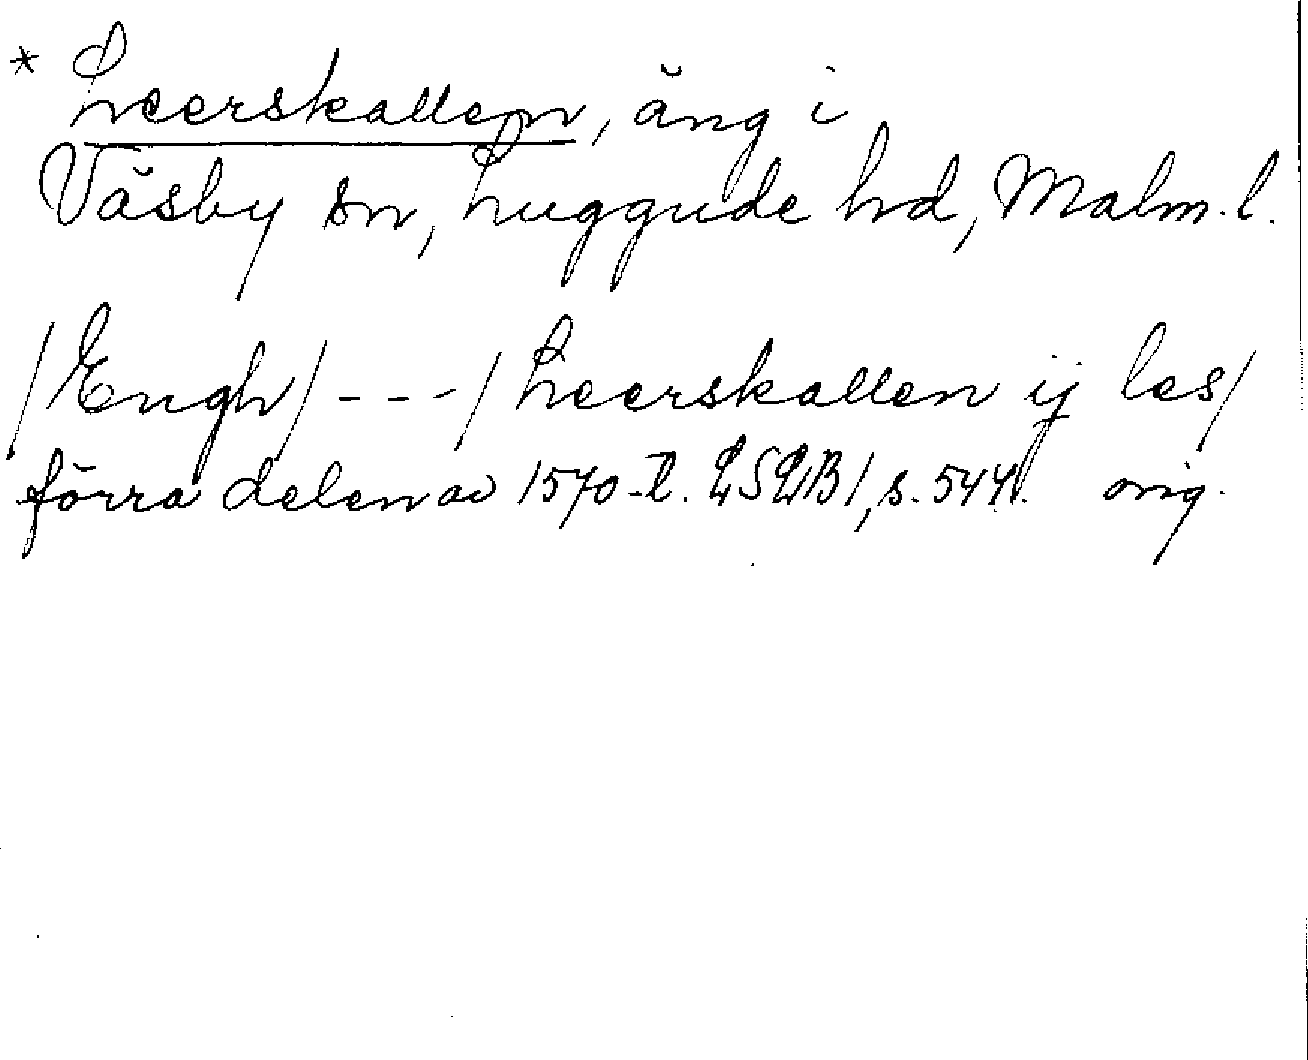 * Leerskallen, äng i
Väsby sn, Luggude hd, Malm. l.
/Engh/ - - - / Leerskallen ij les/
förra delen av 1570-t. LSLB 1, s. 544. orig.